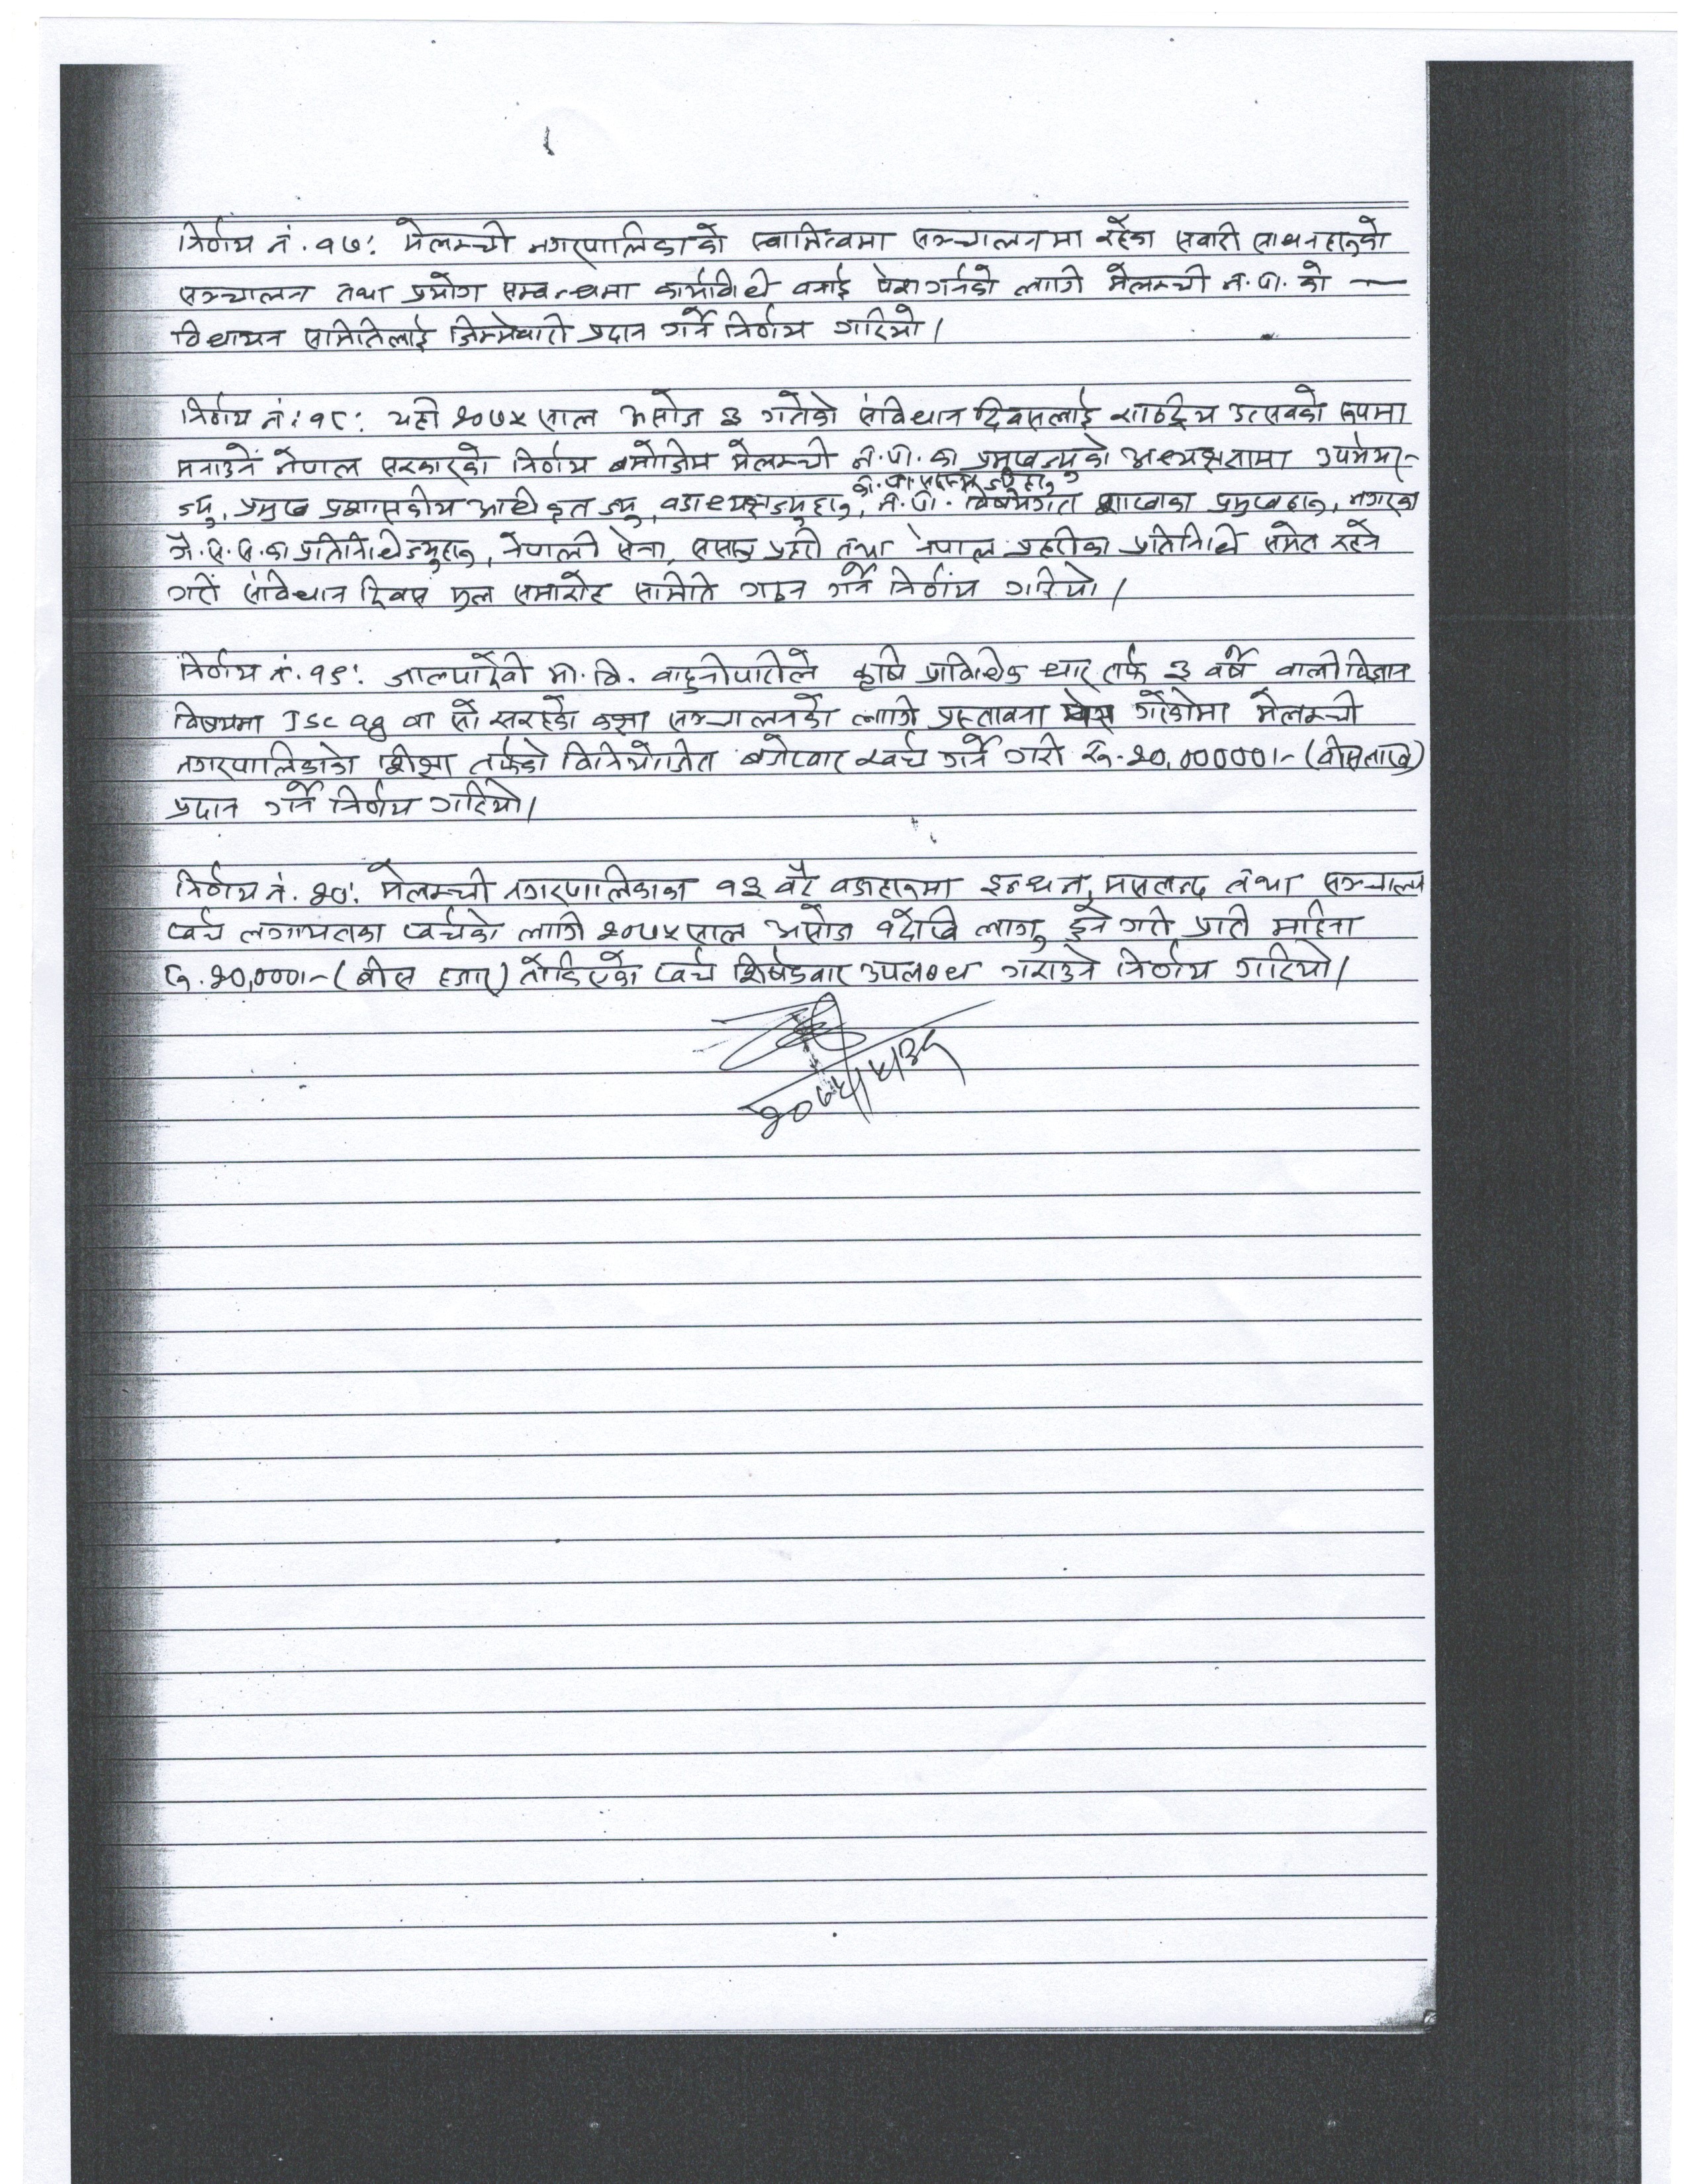 निर्णय नं. १७: मेलम्ची नगरपालिकाको स्वामित्वमा सञ्चालनमा रहेका सवारी साधनहरुको
सञ्चालन तथा प्रयोग सम्बन्धमा कार्यविधि बनाई पेश गर्नको लागि मेलम्ची न.पा. को —
विधायन समितिलाई जिम्मेवारी प्रदान गर्ने निर्णय गरियो।
निर्णय नं: १८: यही २०७५ साल असोज ३ गतेको संविधान दिवसलाई राष्ट्रिय उत्सवको रुपमा
मनाउने नेपाल सरकारको निर्णय बमोजिम मेलम्ची न.पा. का प्रमुखज्युको अध्यक्षतामा उपमेयर-
का.पा. सदस्यज्युहरु,
ज्यु, प्रमुख प्रशासकीय अधिकृत ज्यु, वडाध्यक्षज्युहरु, न.पा. विषयगत शाखाका प्रमुखहरु, नगरका
गै.स.स.का प्रतिनिधिज्युहरु, नेपाली सेना, सशस्त्र प्रहरी तथा नेपाल प्रहरीका प्रतिनिधि समेत रहने
गरी संविधान दिवस मुल समारोह समिति गठन गर्ने निर्णय गरियो।
निर्णय नं. १९: जालपादेवी मा.वि. बाहुनीपाटीले कृषि प्राविधिक धार तर्फ ३ वर्षे बाली विज्ञान
विषयमा Isc ag वा सो सरहको कक्षा सञ्चालनको लागि प्रस्तावना पेस गरेकोमा मेलम्ची
नगरपालिकाको शिक्षा तर्फको विनियोजित बजेटबाट खर्च गर्ने गरी रु. २०,०००००।- (बीस लाख)
प्रदान गर्ने निर्णय गरियो।
निर्णय नं. २०: मेलम्ची नगरपालिकाका १३ वटै वडाहरुमा इन्धन, मसलन्द तथा सञ्चालन
खर्च लगायतका खर्चको लागि २०७५ साल असोज १ देखि लागु हुने गरी प्रति महिना
रु. २०,०००।- (बीस हजार) तोकिएको खर्च शिर्षकबाट उपलब्ध गराउने निर्णय गरियो।
२०७५/५/३१